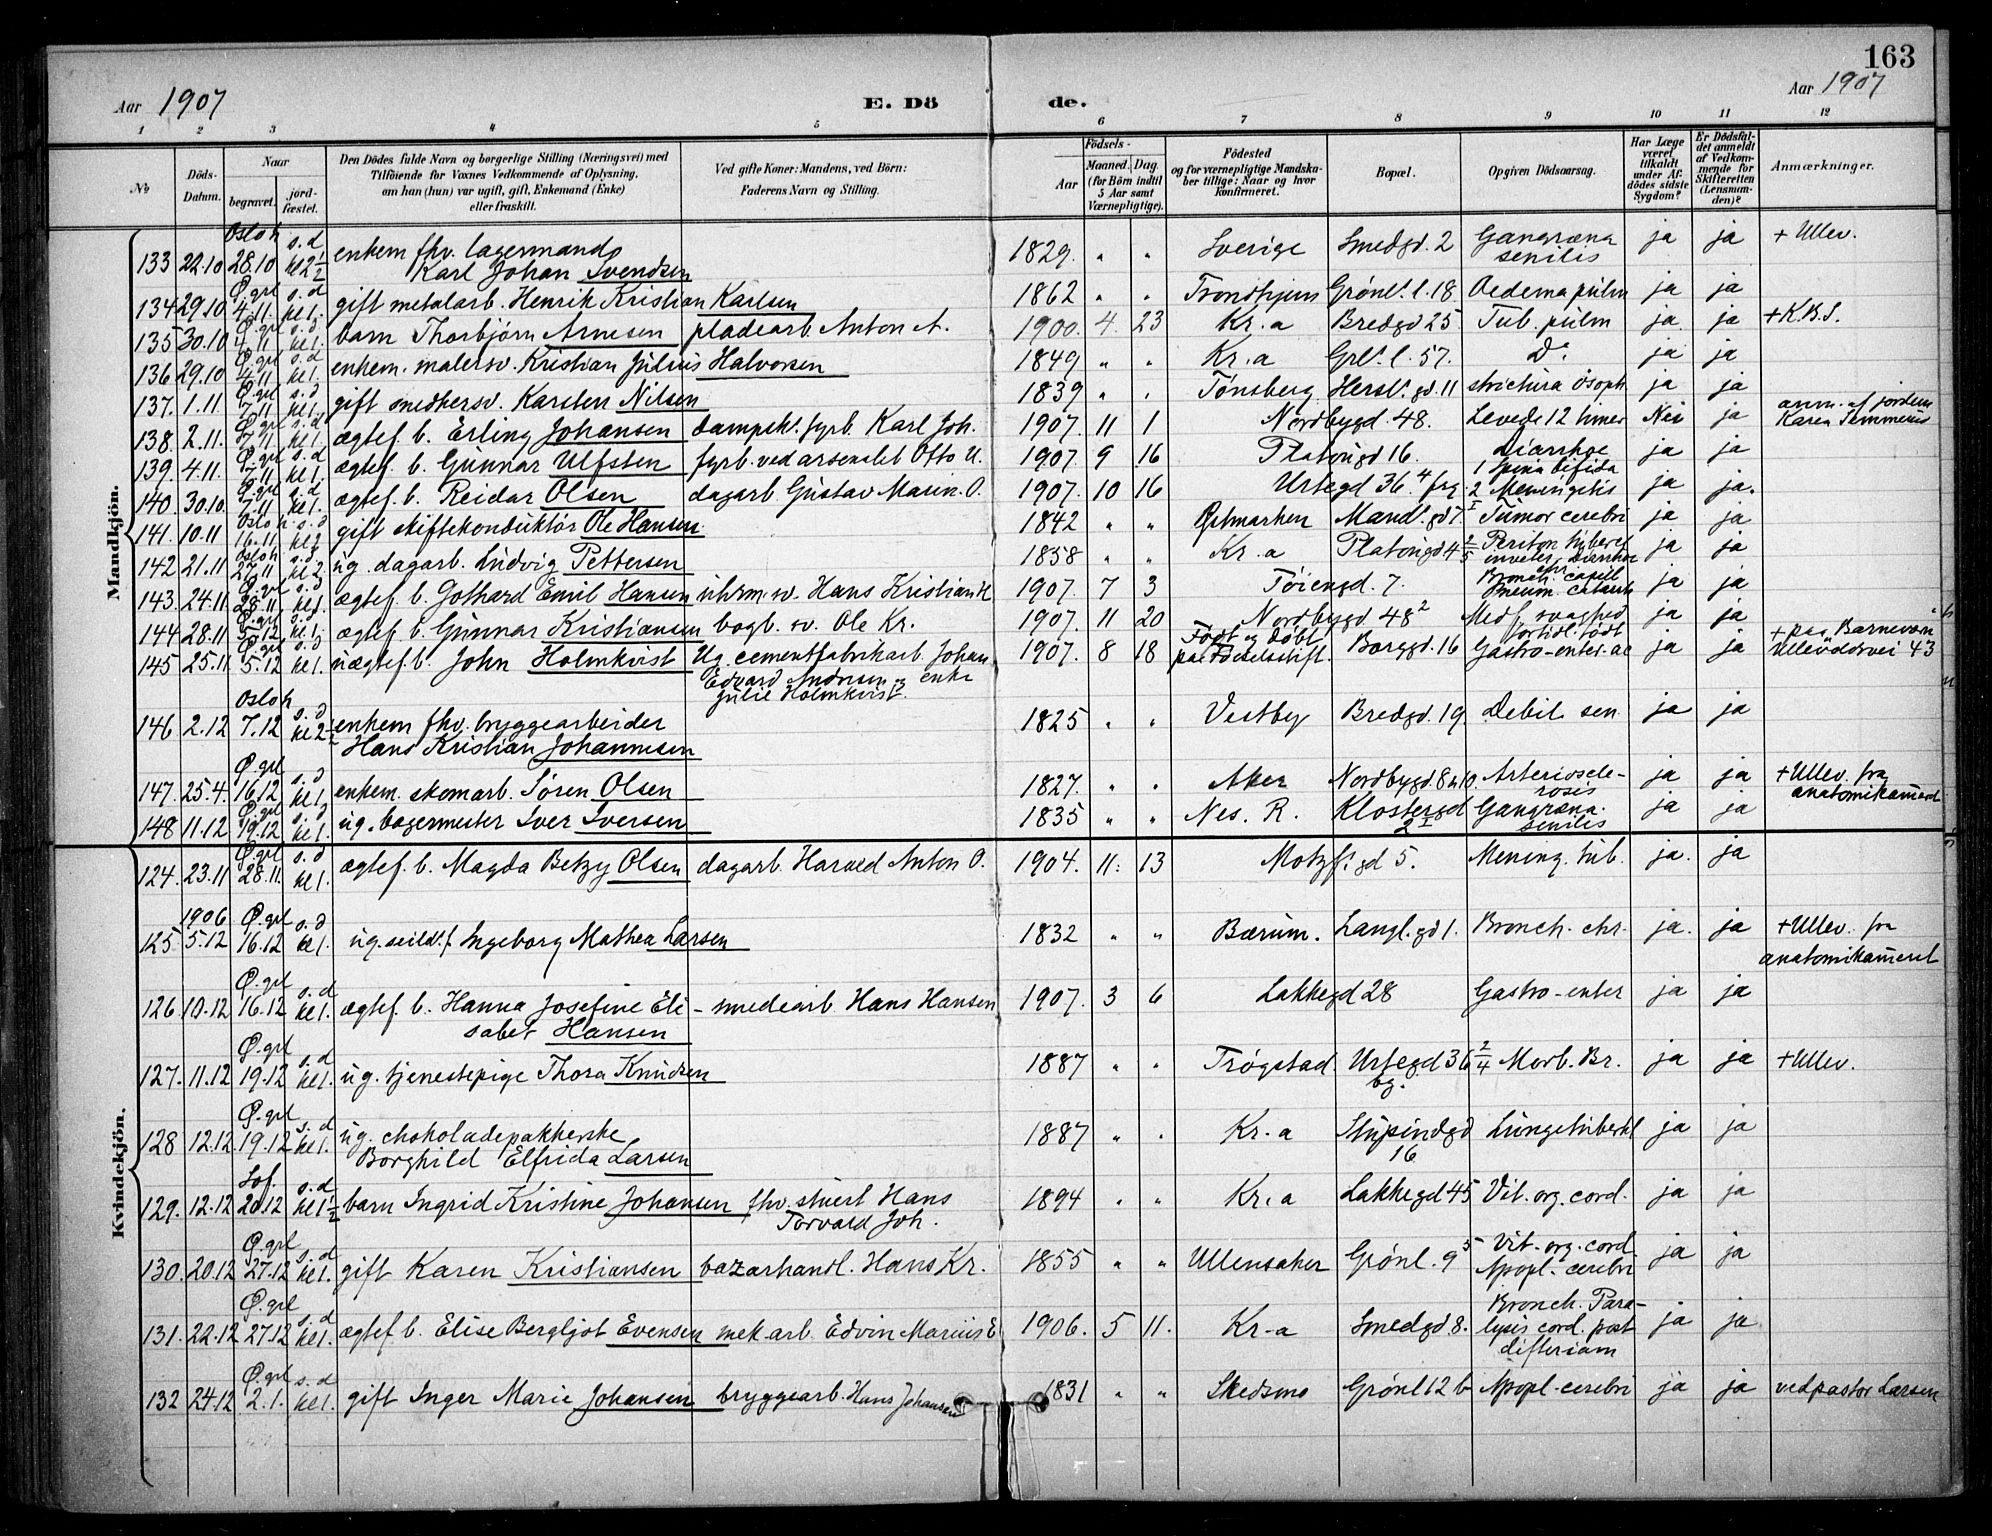 163
Aar 1907
E. Dö
de.
Aar 1907
1 2 3 4 5 6 7 8 9 10 11 12
No
Döds-Datum.
Naar
begravet.
jord-fæstet.
Den Dödes fulde Navn og borgerlige Stilling (Næringsvei) med
Tilföiende for Voxnes Vedkommende af Oplysning,
om han (hun) var ugift, gift, Enkemand (Enke)
eller fraskilt.
Ved gifte Koner: Mandens, ved Börn:
Faderens Navn og Stilling.
Födsels-
Aar
Maaned. Dag.
(for Börn indtil
5 Aar samt
Værnepligtige).
Födested
og for værnepligtige Mandska-
ber tillige: Naar og hvor
konfirmeret.
Bopæl.
Opgiven Dödsaarsag.
Har Læge
været
tilkaldt
under Af-
dödes sidste
Sygdom?
Er Dödsfal-
det anmeldt
af Vedkom-
mende for
Skifteretten
(Lensman-
den)?
Anmærkninger.
Mandkjön.
133 22.10 Oslo h 28.10 s.d kl 2½ enkem fhv. lagermand Karl Johan Svendsen 1829. " " Sverige Smedgd. 2 Gangræna senilis ja ja + Ullev.
134 29.10 Ø.grl 4.11. s.d kl 1. gift metalarb. Henrik Kristian Karlsen 1862 " " Trondhjem Grönl. l. 18 Oedema pulm ja ja
135 30.10 Ø.grl 4.11 s.d. kl 1. barn Thorbjørn Arnesen pladearb. Anton A. 1900. 4. 23 Kr.a Bredgd 25 Tub. pulm ja ja + K.B.S.
136 29.10 Ø.grl 4.11 s.d kl 1. enkem. malersv. Kristian Julius Halvorsen 1849 " " Kr.a Grl. l. 57. Do ja ja
137. 1.11 Ø.grl 7.11 s.d kl 1. gift smedkersv. Karsten Nilsen 1839 " " Tönsberg Hersl. gd. 11 strictura ösoph. ja ja
138. 2.11. Ø.grl 7.11 s.d kl 1. ægtef. b. Erling Johansen dampsk. fyrb Karl Joh. 1907. 11 1 Nordbygd. 48. Levede 12 timer Nei ja anm. af jordem Karen
139. 4.11. Ø.grl 7.11 s.d kl 1. ægtef. b. Gunnar Ulfsten fyrb. ved arsenalet Otto U. 1907. 9 16 Platougd 16. Diarrhoe ja ja
140. 30.10. Ø.grl 7.11 s.d kl 1. ægtef. b. Reidar Olsen dagarb Gustav Maren. O. 1907. 10 16 Urtegd 36.4 frg. 1 Spina bifida 2 Meningitis ja ja.
141. 10.11 Oslo h 16.11 s.d kl 2 gift skiftekonduktör Ole Hansen 1842 " " Östmarken Mandl. gd 7 I Tumor cerebri ja ja
142 21.11 Oslo h 27.11 s.d kl 2 ug. dagarb. Ludvig Pettersen 1858 " " Kr.a Platougd 4 2/5 Periton tubercl inveter, Diarrhoe chr ja ja
143. 24.11 Ø.grl 28.11. s.d kl 1. ægtef. b. Gothard Emil Hansen uhrm. sv. Hans Kristian H 1907. 7 3 Töiengd. 7. Bronch. capill Pneum. catarrh ja ja
144 28.11 Ø.grl 5.12 s.d kl. 1. ægtef. b. Gunnar Kristiansen bogb. sv. Ole Kr. 1907. 11 20 Nordbygd 48 2 Medf. svaghed fortidl. födt ja ja
145 25.11 Ø.grl 5.12 s.d kl 1. uægtef. b. John Holmkvist Ug. cementfabrikarb. Johan Edvard Andresen og enke Julie Holmkvist. 1907. 8 18 Födt og döbt paa Födselsstift. Borggd. 16 Gastro-enter. ac ja ja + paa Barnevön Ullevoldsvei 43
146 2.12 Oslo h 7.12 s.d kl 2½ enkem fhv. bryggearbeider Hans Kristian Johannesen 1825 " " Vestby Bredgd. 19 Debil sen ja ja
147. 25.4. Ø.grl 16.12 s.d kl 1. enkem. skomarb. Sören Olsen 1827. " " Aker Nordbygd 8 Arteriosclerosis ja ja + Ullev. fra anatomikammeret
148 11.12 Ø.grl 19.12 s.d kl 1. ug. bagermester Iver Iversen 1835 " " Nes. R. Klostergd 2 I Gangræna senilis ja ja
Kvindekjön.
124. 23.11 Ø.grl 28.11. s.d kl 1. ægtef. b. Magda Betzy Olsen dagarb. Harald Anton O. 1904. 11. 13 Motzf. gd 5. Mening. tub. ja. ja
125. 1906 5.12 Ø.grl 16.12 s.d kl 1. ug. seild. f Ingeborg Mathea Larsen 1832 " " Bærum. Langl. gd 1. Bronch. chr. ja. ja + Ullev. fra anatomikammeret
126 10.12 Ø.grl 16.12 s.d kl 1. ægtef. b. Hanna Josefine Elisabet Hansen smedearb Hans Hansen 1907. 3 6 Lakkegd 28 Gastro-enter ja ja
127. 11.12 Ø.grl 19.12 s.d kl 1. ug. tjenestepige Thora Knudsen 1887 " " Trøgstad Urtegd 36 2/4 bg. Morb. Br. ja ja + Ullev.
128 12.12 Ø.grl 19.12 s.d kl 1. ug. chokoladepakkerske Borghild Elfrida Larsen 1887 " " Kr.a Stupindgd 16 Lungetuberkl ja ja
129. 12.12 Sof. 20.12 s.d kl 1½ barn Ingrid Kristine Johansen fhv. stuert Hans Torvald Joh. 1894 " " Kr.a Lakkegd 45 Vit. org. cord. ja ja
130. 20.12 Ø.grl 27.12 s.d kl 1. gift Karen Kristiansen bazarhandl. Hans Kr. 1855 " " Ullensaker Grønl. 9 5 Vit. org. cord Apopl. cerebri ja ja
131. 22.12 Ø.grl 27.12 s.d kl 1. ægtef. b. Elise Bergljot Evensen mek. arb. Edvin Marius E 1906. 5 11. Kr.a Smedgd 8. Bronch. Paralysis cord. post difteriam ja ja
132 24.12 Ø.grl 2.1. s.d kl 1. gift Inger Marie Johansen bryggearb. Hans Johansen 1831 " " Skedsmo Grønl 12 b Apopl. cerebri ja ja ved pastor Larsen